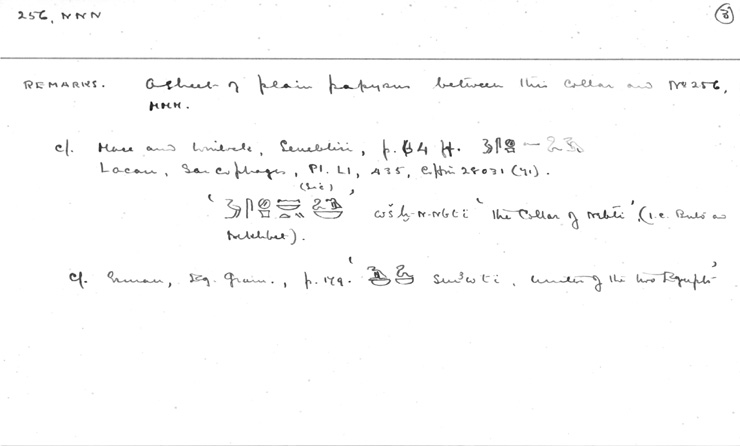 256, NNN 3
REMARKS. A sheet of plain papyrus between this collar and No 256,
MMM.
cf. Mace and Winlock, Senebtisi, p. 64 ff.
Lacau, Sarcophages, Pl. LI, 435, Coffin 28031 (41).
(sic)
' ' wsḫ-n-nbti 'the Collar of Nebti', (i.e. Buto and
Nekhbet).
cf. Erman, Eg. Gram., p. 179. ' , of the two Egypts'